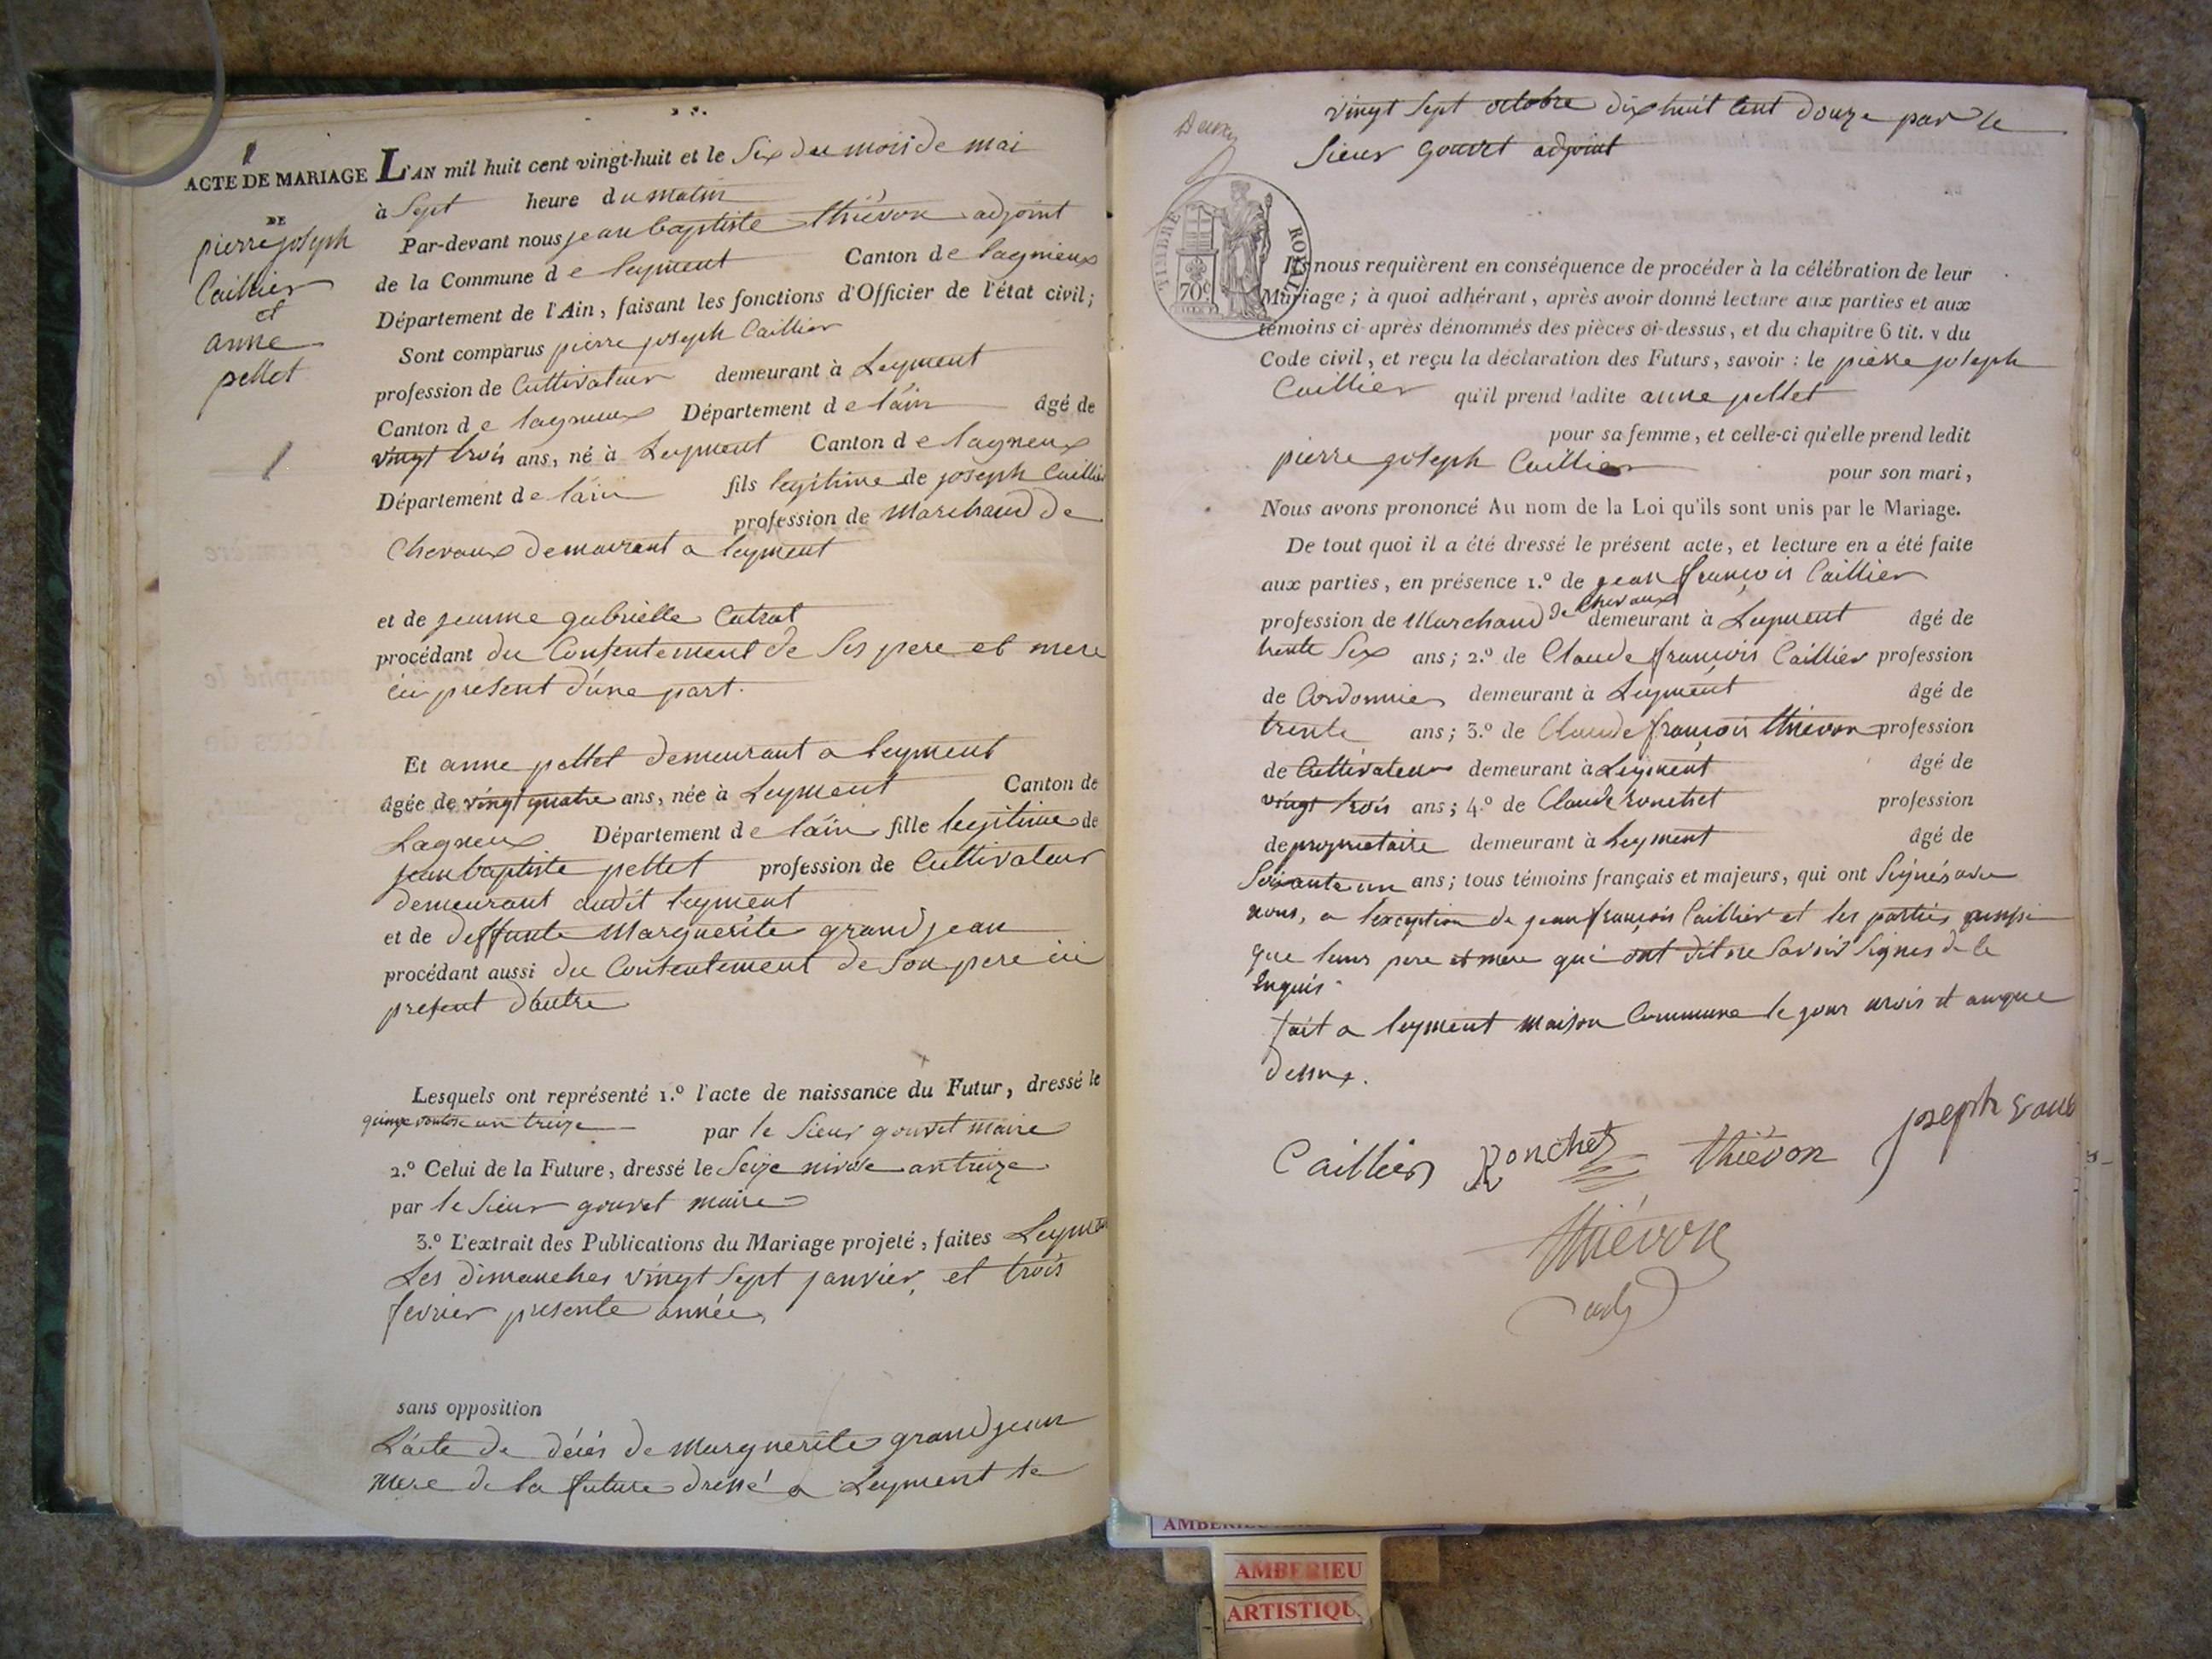 ACTE DE MARIAGE
DE
pierre joseph
Caillier
et
anne
pellet
L'AN mil huit cent vingt-huit et le Six du mois de mai
à Sept heure du matin
Par-devant nous jean baptiste thiévon adjoint
de la Commune de leyment Canton de lagnieux
Département de l'Ain, faisant les fonctions d'Officier de l'état civil;
Sont comparus pierre joseph Caillier
profession de Cultivateur demeurant à Leyment
Canton de lagnieux Département de l'ain âgé de
vingt trois ans, né à Leyment Canton de lagneux
Département de l'ain fils legitime de joseph Caillier
profession de Marchand de
Chevaux demeurant a leyment
et de jeanne gabrielle Cutrat
procédant du Consentement de Ses pere et mere
ici present d'une part.
Et anne pellet demeurant a leyment
âgée de vingt quatre ans, née à Leyment Canton de
Lagneux Département de l'ain fille legitime de
jean baptiste pellet profession de Cultivateur
demeurant audit leyment
et de deffunte Marguerite grandjean
procédant aussi du Contentement de Son pere ici
present d'autre
Lesquels ont représenté 1.º l'acte de naissance du Futur, dressé le
quinze ventose an treize par le Sieur gouvet maire
2.º Celui de la Future, dressé le Seize nivose an treize
par le Sieur gouvet maire
3.º L'extrait des Publications du Mariage projeté, faites Leyment
Les dimanches vingt Sept janvier, et trois
fevrier presente année,
sans opposition
L'acte de décés de Marguerite grandjean
mere de la future dressé a Leyment le
vingt Sept octobre dix huit cent douze par le
Sieur gouvet adjoint
TIMBRE ROYAL
70c
Ils nous requièrent en conséquence de procéder à la célébration de leur
Mariage; à quoi adhérant, après avoir donné lecture aux parties et aux
témoins ci-après dénommés des pièces ci-dessus, et du chapitre 6 tit. v du
Code civil, et reçu la déclaration des Futurs, savoir: le pierre joseph
Caillier qu'il prend ladite anne pellet
pour sa femme, et celle-ci qu'elle prend ledit
pierre joseph Caillier pour son mari,
Nous avons prononcé Au nom de la Loi qu'ils sont unis par le Mariage.
De tout quoi il a été dressé le présent acte, et lecture en a été faite
aux parties, en présence 1.º de jean françois Caillier
profession de Marchand de Chevaux demeurant à Leyment âgé de
trente Six ans; 2.º de Claude françois Caillier profession
de Cordonnier demeurant à Leyment âgé de
trente ans; 3.º de Claude françois thievon profession
de Cultivateur demeurant à Leyment âgé de
vingt trois ans; 4.º de Claude ronchet profession
de proprietaire demeurant à Leyment âgé de
Soixante un ans; tous témoins français et majeurs, qui ont Seignés avec
nous, a l'exception de jean françois Caillier et les parties aussi
que leurs pere et mere qui ont dit ne Savoir Signer de ce
enquis.
fait a leyment maison Commune le jour mois et an que
dessus.
Caillier Ronchet thiévon joseph
thiévon
adj
AMBERIEU
ARTISTIQUE